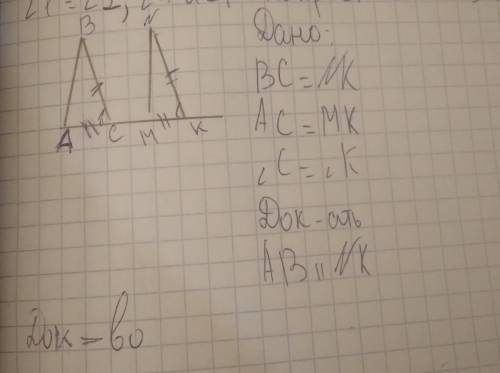 B
N
A
C
M
K
Дано:
BC = NK
AC = MK
∠C = ∠K
Док-ать
AB || NK
Док-во